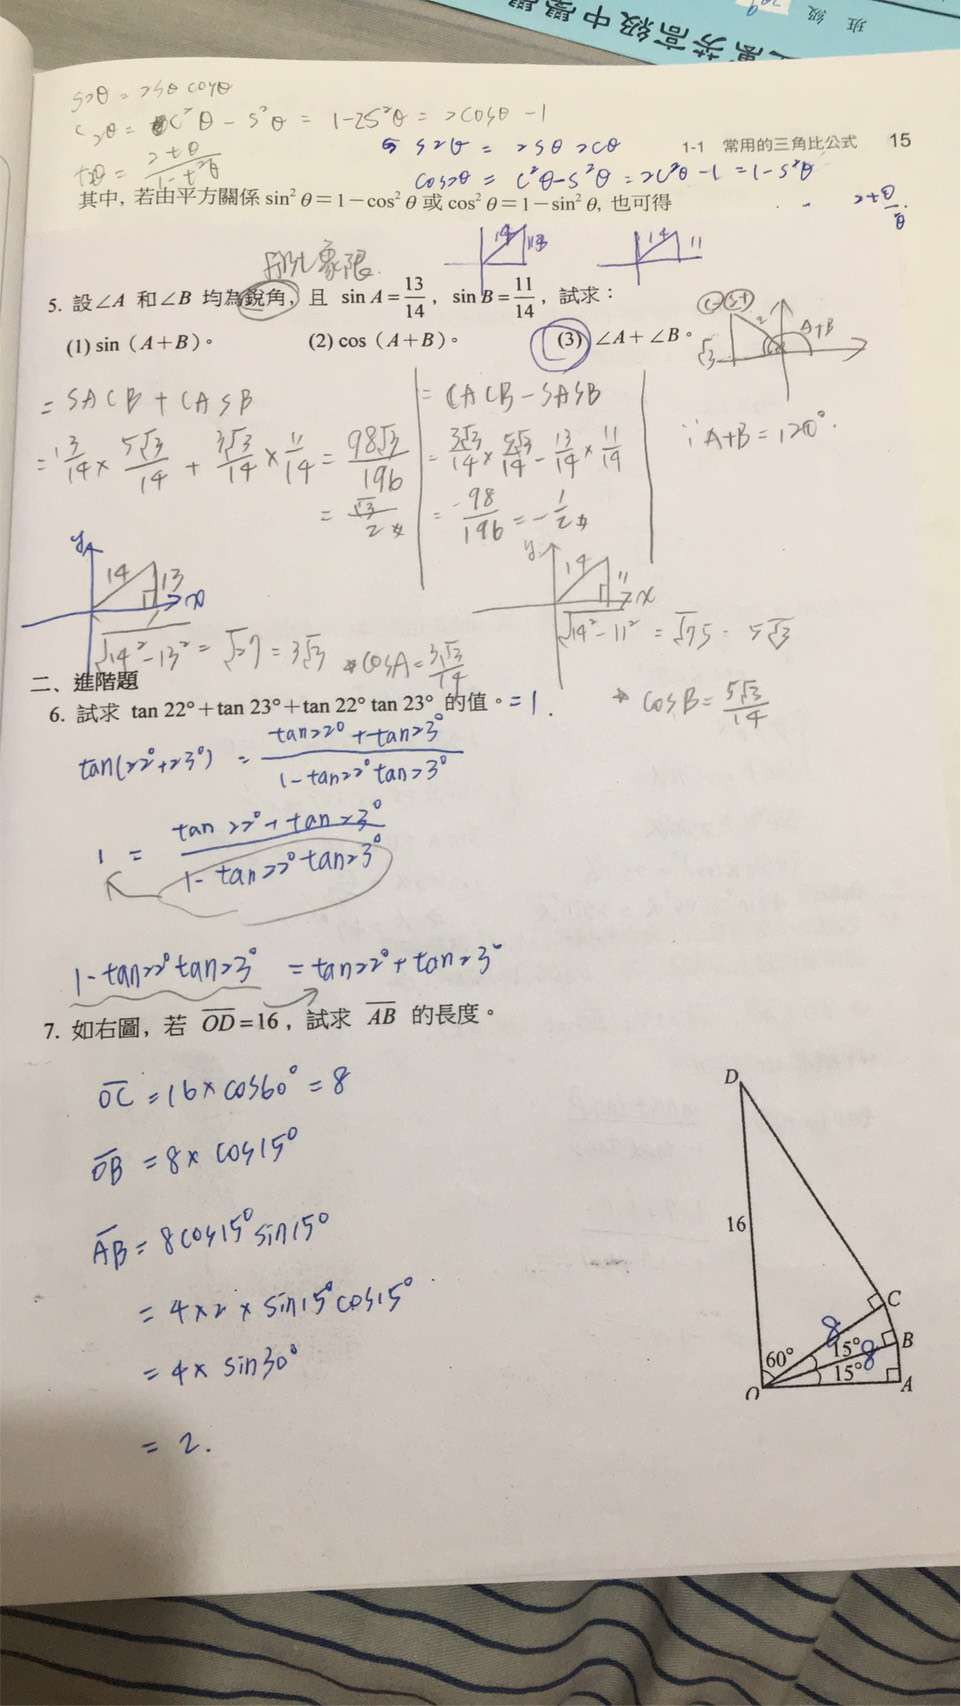 萬芳高級中學學
班 級
S2θ = 2Sθ COSθ
C2θ = C²θ - S²θ = 1-2S²θ = 2COSθ - 1
t2θ = 2tθ / 1-t²θ
S2θ = 2Sθ2Cθ
COS2θ = C²θ-S²θ = 2C²θ-1 = 1-S²θ
1-1 常用的三角比公式 15
其中, 若由平方關係 sin² θ = 1 - cos² θ 或 cos² θ = 1 - sin² θ, 也可得
14 13
14 11
5. 設∠A 和∠B 均為銳角, 且 sin A = 13/14 , sin B = 11/14 , 試求:
(1) sin (A+B)。 (2) cos (A+B)。 (3) ∠A+∠B。
√3 2 A+B
= SACB + CASB
= 13/14 × 5√3/14 + 3√3/14 × 11/14 = 98√3/196
= √3/2
= CACB - SASB
= 3√3/14 × 5√3/14 - 13/14 × 11/14
= -98/196 = -1/2
∵ A+B = 120°.
y 14 13 x
√14²-13² = √27 = 3√3
* COSA = 3√3/14
y 14 11 x
√14²-11² = √75 = 5√3
* COSB = 5√3/14
二、進階題
6. 試求 tan 22° + tan 23° + tan 22° tan 23° 的值。 = 1.
tan(22°+23°) = tan22°+tan23° / 1-tan22°tan23°
1 = tan22°+tan23° / 1-tan22°tan23°
1-tan22°tan23° = tan22°+tan23°
7. 如右圖, 若 OD = 16, 試求 AB 的長度。
OC = 16×cos60° = 8
OB = 8× cos15°
AB = 8cos15°sin15°
= 4×2× sin15°cos15°
= 4× sin30°
= 2.
D
16
C
8
60° 15° 8 B
15°
O A